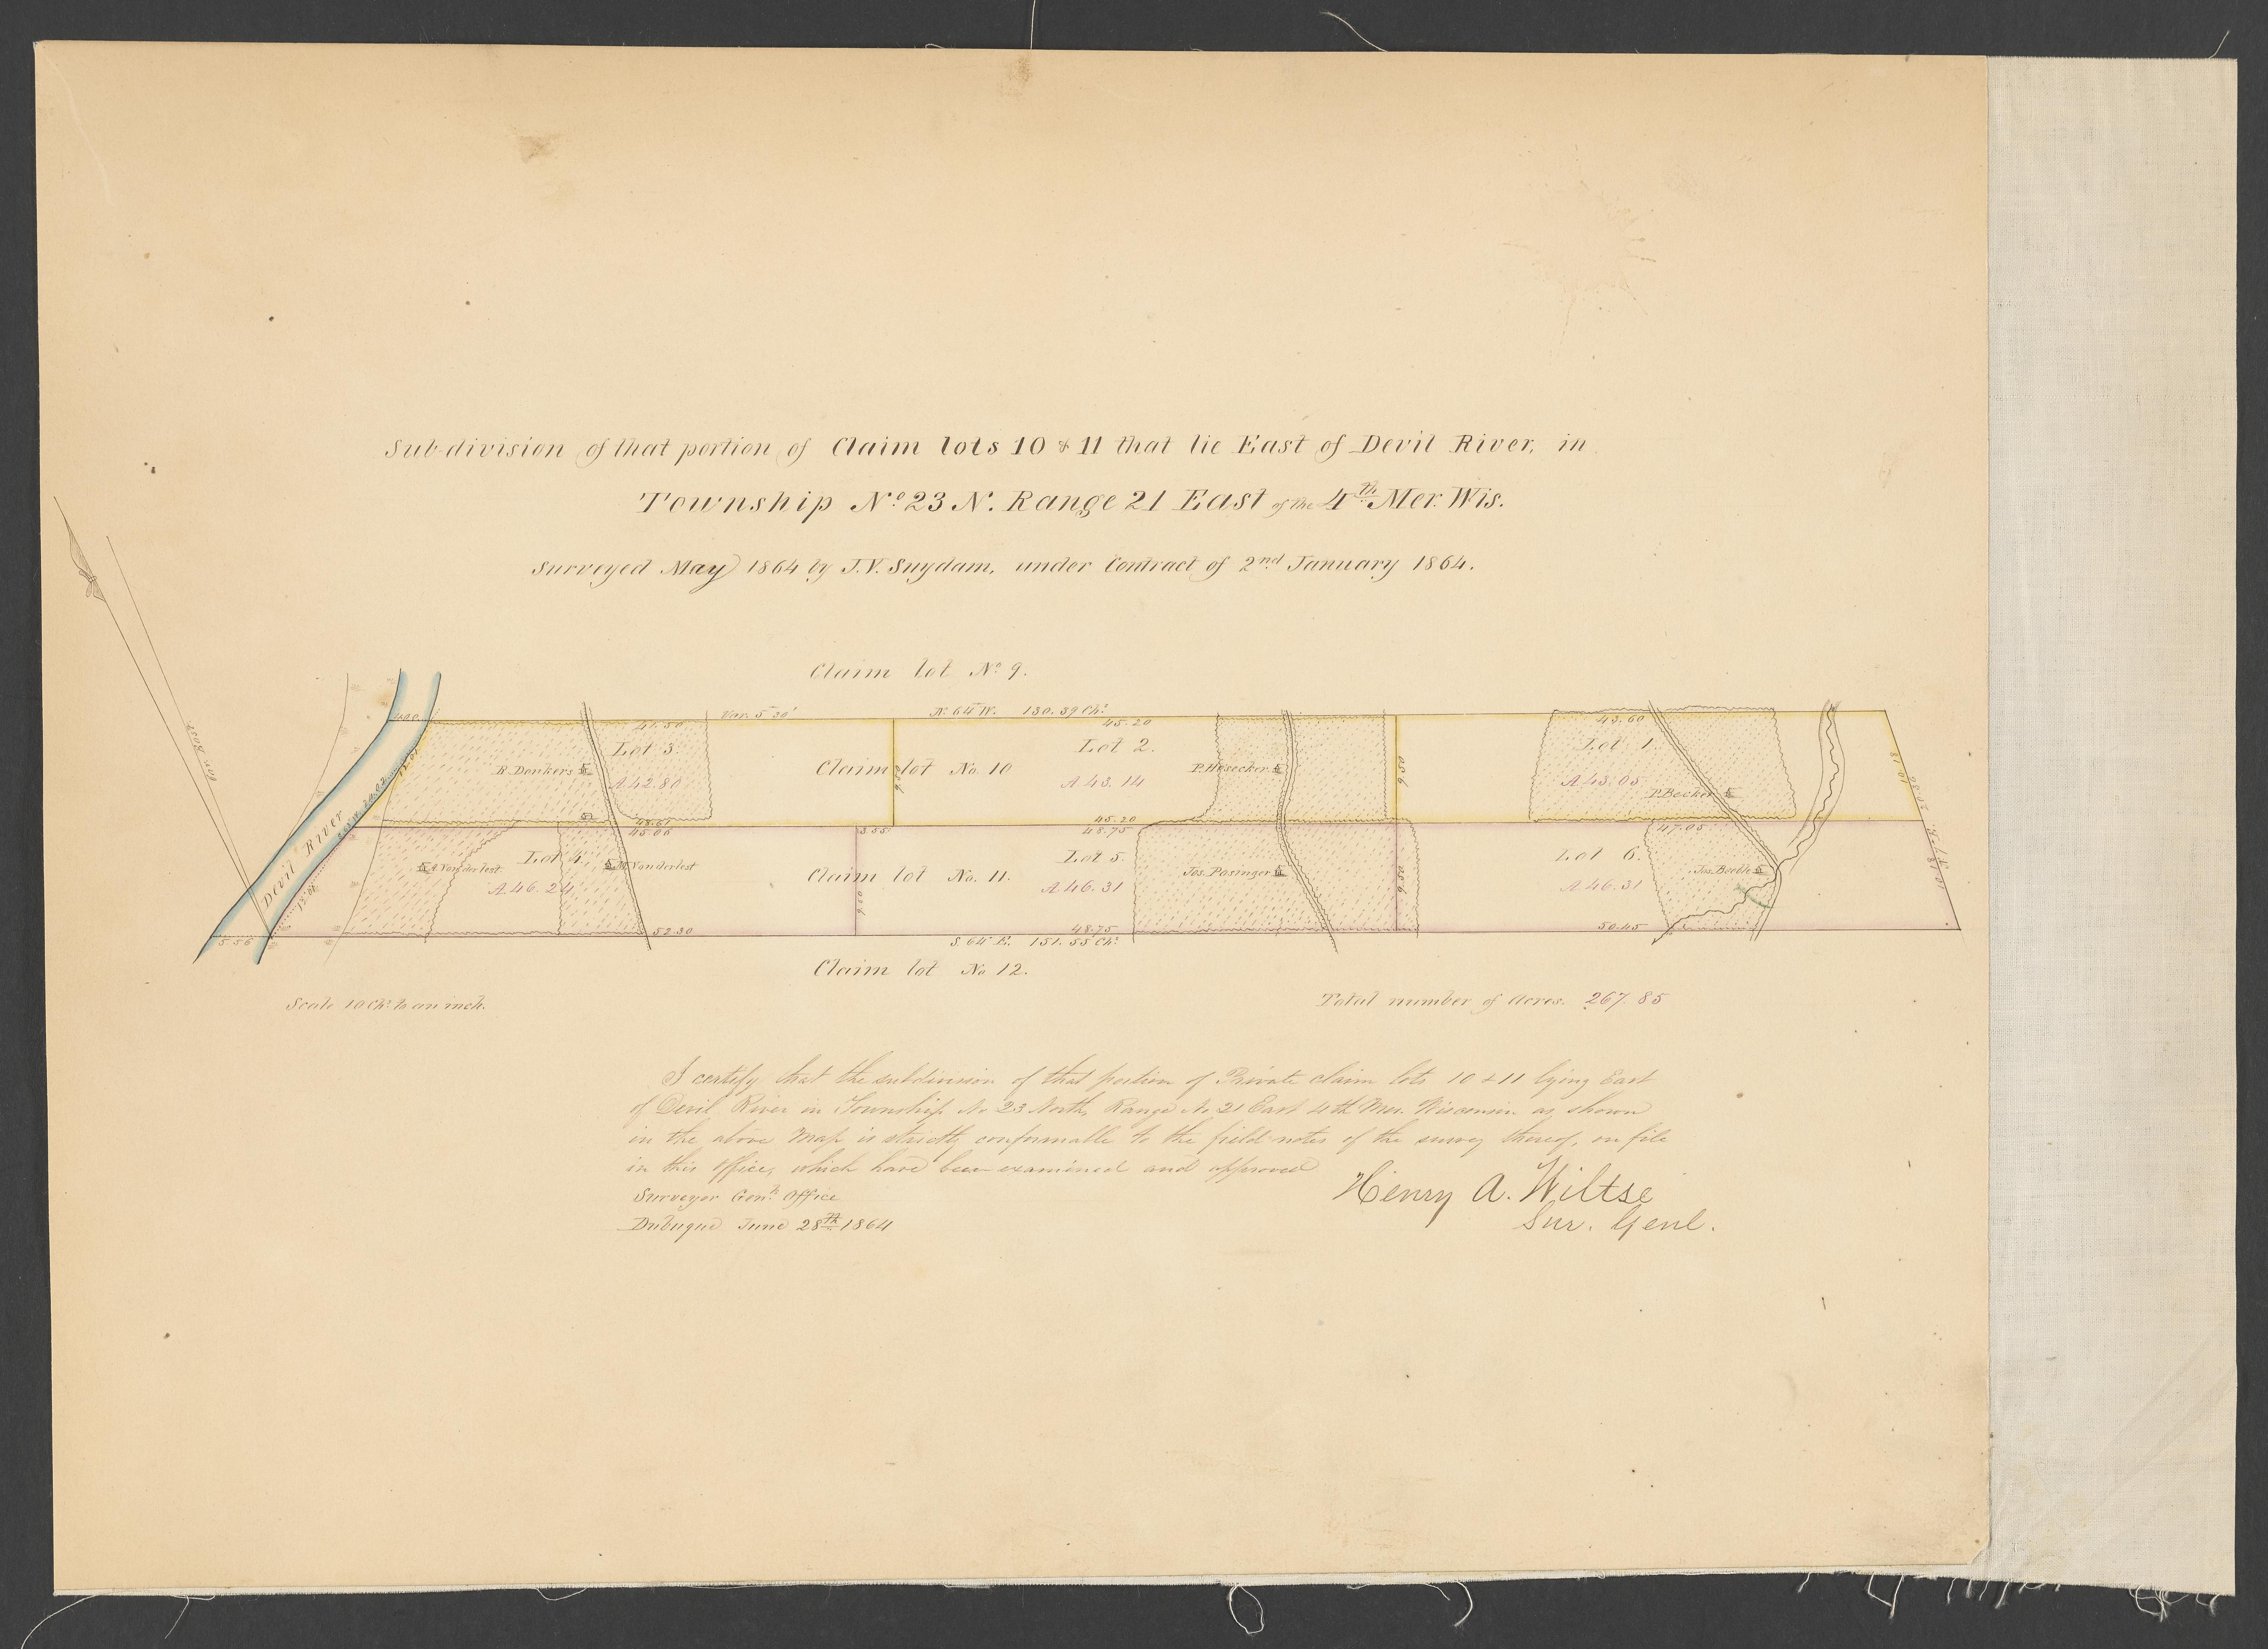 Sub-division of that portion of Claim lots 10 & 11 that lie East of Devil River, in
Township No. 23 N. Range 21 East of the 4th Mer. Wis.
Surveyed May 1864 by J.V. Suydam, under Contract of 2nd January 1864.
Claim lot No. 9.
4.00
Var. 5° 30'
N. 64° W. 130.39 Chs.
41.50
45.20
43.60
Lot 3.
Lot 2.
Lot 1.
R. Donkers
Claim lot No. 10
P. Hosecker
A 42.80
A 43.14
A 43.05
P. Becker
48.61
45.20
45.06
3.55
48.75
47.05
Devil River
Lot 4.
Lot 5.
Lot 6.
A. Vanderlest
M. Vanderlest
Claim lot No. 11.
Jos. Pasinger
A 46.24
A 46.31
A 46.31
5.56
52.30
48.75
50.45
S. 64° E. 151.55 Chs.
Claim lot No. 12.
Scale 10 Chs. to an inch.
Total number of Acres. 267.85
I certify that the subdivision of that portion of Private claim lots 10 & 11 lying East
of Devil River in Township No 23 North, Range No 21 East 4th Mer. Wisconsin as shown
in the above Map is strictly conformable to the field notes of the survey thereof, on file
in this Office, which have been examined and approved
Surveyor Genl. Office
Dubuque June 28th 1864
Henry A. Wiltse
Sur. Genl.